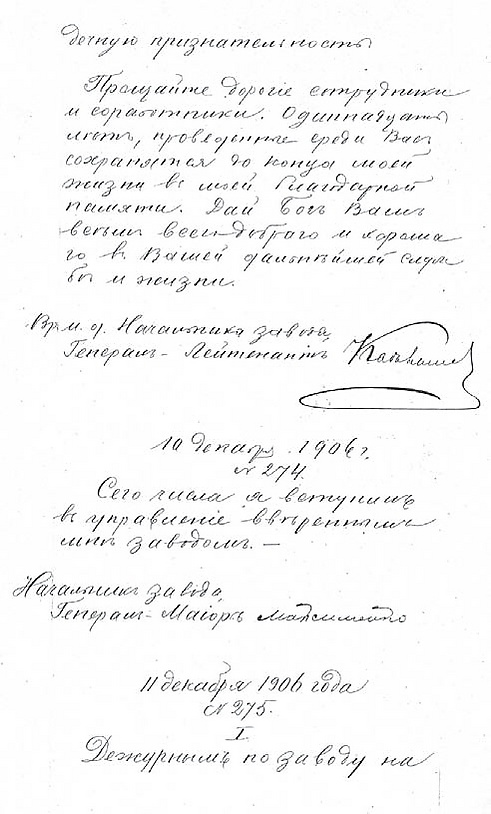 дечную признательность
Прощайте дорогіе сотрудники
и соработники. Одиннадцать
лѣтъ, проведенные среди Васъ
сохранятся до конца моей
жизни въ моей благодарной
памяти. Дай Богъ Вамъ
всѣмъ всего добраго и хороша
го въ Вашей дальнѣйшей служ
бѣ и жизни.
Вр. и. д. Начальника завода,
Генералъ-Лейтенантъ
10 декабря 1906 г.
№ 274.
Сего числа я вступилъ
въ управленіе ввѣреннымъ
мнѣ заводомъ. —
Начальникъ завода,
Генералъ-Маіоръ Максименко
11 декабря 1906 года
№ 275.
I.
Дежурнымъ по заводу на